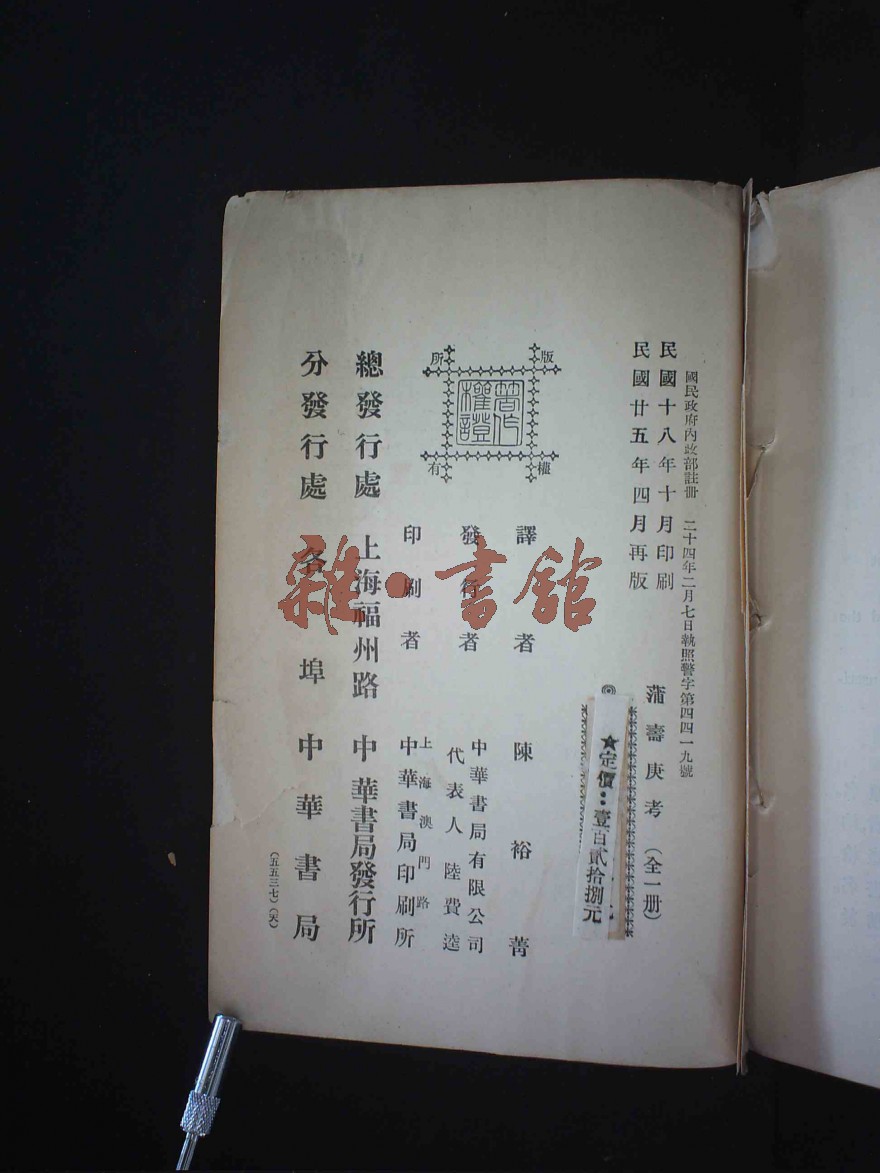 國民政府內政部註冊 二十四年二月七日執照警字第四四一九號
民國十八年十月印刷
民國廿五年四月再版
蒲壽庚考（全一册）
◎
★定價：壹百貳拾捌元
版權所有
著作權證
譯者 陳裕菁
發行者 中華書局有限公司
代表人 陸費逵
印刷者 上海澳門路
中華書局印刷所
總發行處 上海福州路 中華書局發行所
分發行處 各埠 中華書局
（五五三七）（天）
雜·書館